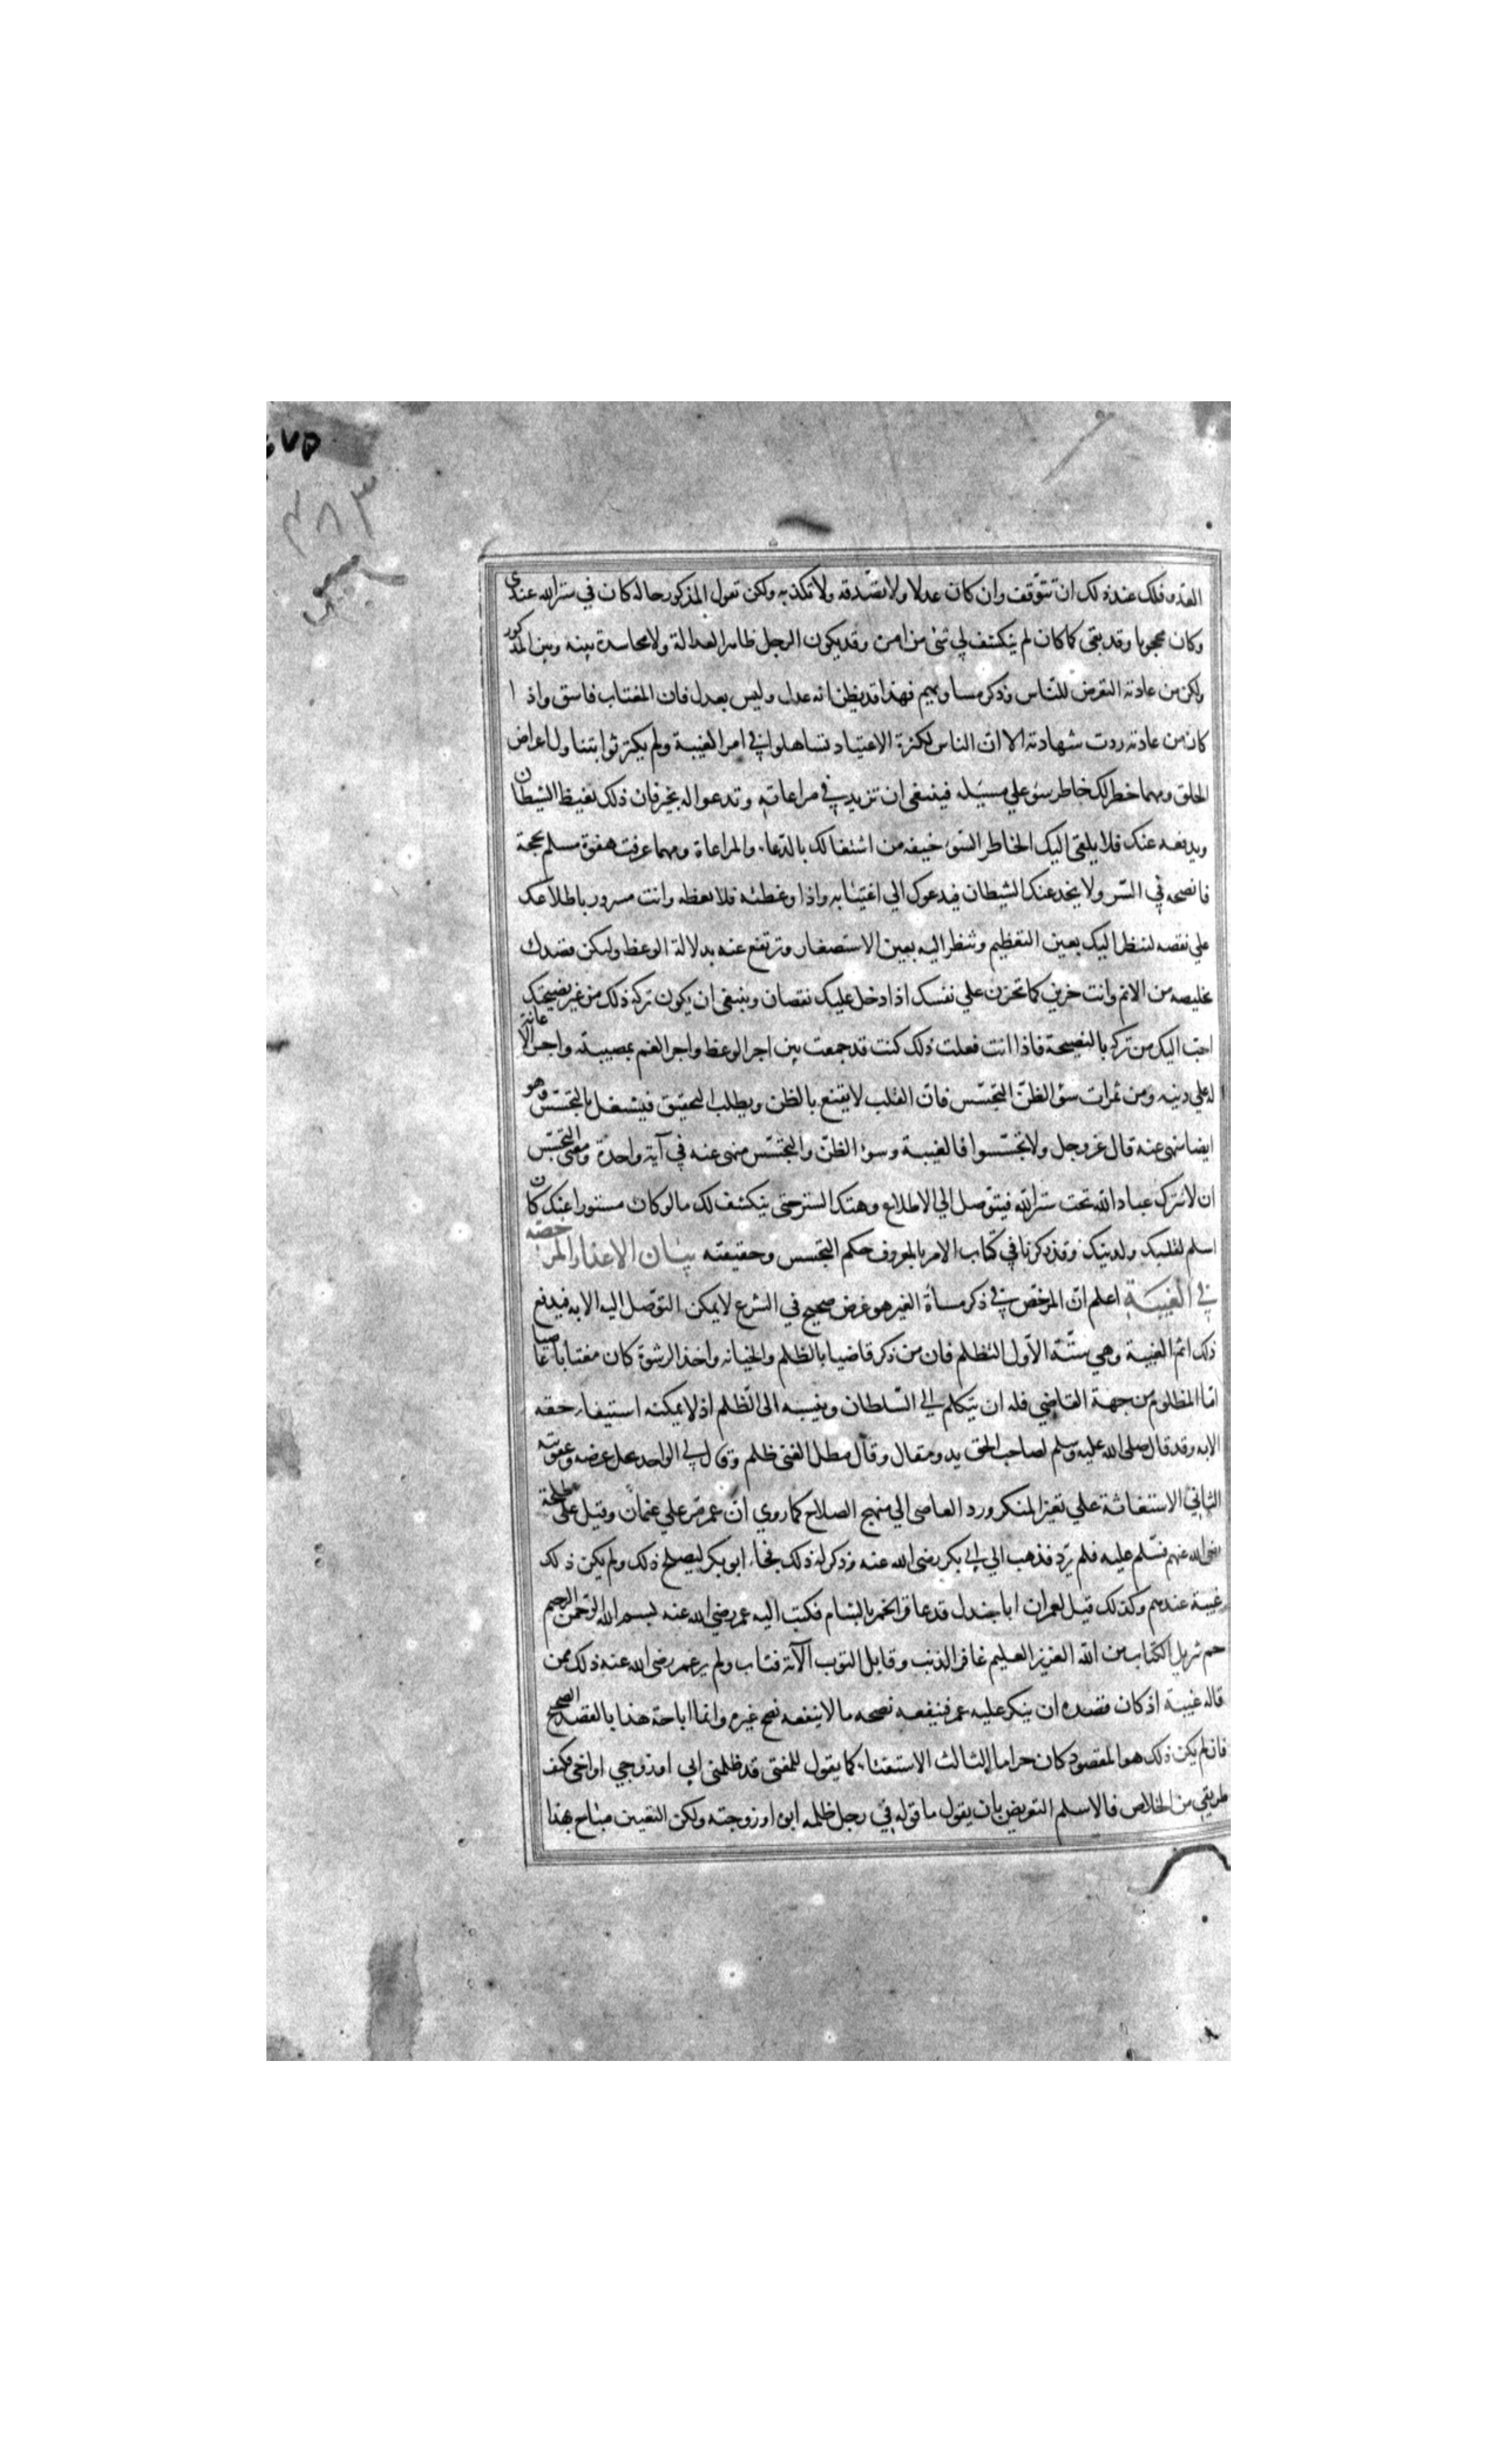 ٤٧٥
٤٨٣
العذه فلك عند ذلك ان تتوقف وان كان عدلا ولا تصدقه ولا تكذبه ولكن تقول المذكور حاله كان في ستر الله عندي
وكان محجوبا وقد بقي كما كان لم ينكشف لي شئ من امره وقد يكون الرجل ظاهر العدالة ولا محاسدة بينه وبين المذكور
ولكن من عادته التعرض للناس وذكر مساويهم فهذا قد يظن انه عدل وليس بعدل فان المغتاب فاسق واذا
كان من عادته ردت شهادته الا ان الناس لكثرة الاعتياد تساهلوا في امر الغيبة ولم يكترثوا بتناول اعراض
الخلق ومهما خطر لك خاطر سوء علي مسلم فينبغي ان تزيد في مراعاته وتدعو له بخير فان ذلك يغيظ الشيطان
ويدفعه عنك فلا يلقي اليك الخاطر السوء خيفه من اشتغالك بالدعاء والمراعاة ومهما عرفت هفوة مسلم بحجة
فانصحه في السر ولا يخدعنك الشيطان فيدعوك الي اغتيابه واذا وعظته فلا تعظه وانت مسرور باطلاعك
علي نقصه لينظر اليك بعين التعظيم وتنظر اليه بعين الاستصغار وترتفع عنه بدلالة الوعظ وليكن قصدك
تخليصه من الاثم وانت حزين كما تحزن علي نفسك اذا دخل عليك نقصان وينبغي ان يكون تركه ذلك من غير نصيحتك
احب اليك من تركه بالنصيحة فاذا انت فعلت ذلك كنت قد جمعت بين اجر الوعظ واجر الغم بمصيبته واجر الاعانة
له علي دينه ومن ثمرات سوء الظن التجسس فان القلب لا يقنع بالظن ويطلب التحقيق فيشغل بالتجسس وهو
ايضا منهي عنه قال عز وجل ولا تجسسوا فالغيبة وسوء الظن والتجسس منهي عنه في آية واحدة ومعني التجسس
ان لا تترك عباد الله تحت ستر الله فيتوصل الي الاطلاع وهتك الستر حتي ينكشف لك ما لو كان مستورا عنك كان
اسلم لقلبك ولدينك وقد ذكرنا في كتاب الامر بالمعروف حكم التجسس وحقيقته بيان الاعذار المرخصة
في الغيبة اعلم ان المرخص في ذكر مساة الغير هو غرض صحيح في الشرع لا يمكن التوصل اليه الا به فيدفع
ذلك اثم الغيبة وهي ستة الاول التظلم فان من ذكر قاضيا بالظلم والخيانه واخذ الرشوة كان مغتابا عاصيا
اما المظلوم من جهة القاضي فله ان يتكلم الي السلطان وينسبه الى الظلم اذ لا يمكنه استيفاء حقه
الا به وقد قال صلى الله عليه وسلم لصاحب الحق يد ومقال وقال مطل الغني ظلم وقال لي الواجد يحل عرضه وعقوبته
الثاني الاستغاثة علي تغيير المنكر ورد العاصي الي منهج الصلاح كما روي ان عمر مر علي عثمان وقيل علي طلحة
رضي الله عنهم فسلم عليه فلم يرد فذهب الي ابي بكر رضي الله عنه وذكر له ذلك فجاء ابو بكر ليصلح ذلك ولم يكن ذلك
غيبة عندهم وكذلك قيل لعمر ان ابا جندل قد عاقر الخمر بالشام فكتب اليه عمر رضي الله عنه بسم الله الرحمن الرحيم
حم تنزيل الكتاب من الله العزيز العليم غافر الذنب وقابل التوب الآية فتاب ولم ير عمر رضي الله عنه ذلك ممن
قاله غيبة اذ كان قصده ان ينكر عليه عمر فينفعه نصحه ما لا ينفعه نصح غيره وانما اباحة هذا بالقصد الصحيح
فان لم يكن ذلك هو المقصود كان حراما الثالث الاستفتاء كما يقول للمفتي قد ظلمني ابي او زوجي او اخي فكيف
طريقي من الخلاص فالاسلم التعريض بان يقول ما قوله في رجل ظلمه ابوه او زوجته ولكن التعيين مباح بهذا